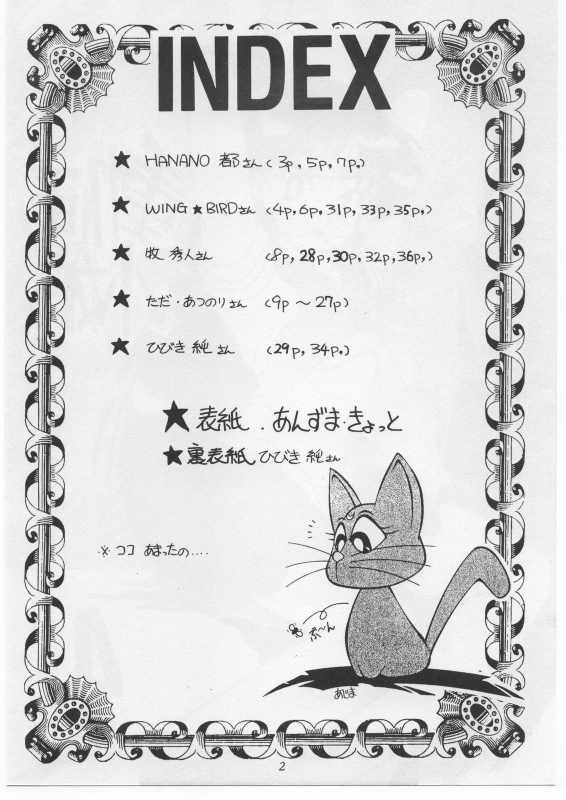 INDEX
★ HANANO 都さん (3p, 5p, 7p.)
★ WING★BIRDさん (4p, 6p, 31p, 33p, 35p,)
★ 牧 秀人さん (8p, 28p, 30p, 32p, 36p,)
★ ただ・あつのりさん (9p 〜 27p)
★ ひびき 純 さん (29p, 34p.)
★ 表紙 . あんずま・きょっと
★ 裏表紙 ひびき 純 さん
※ ココ あまったの....
ぶ〜ん
あじま
2